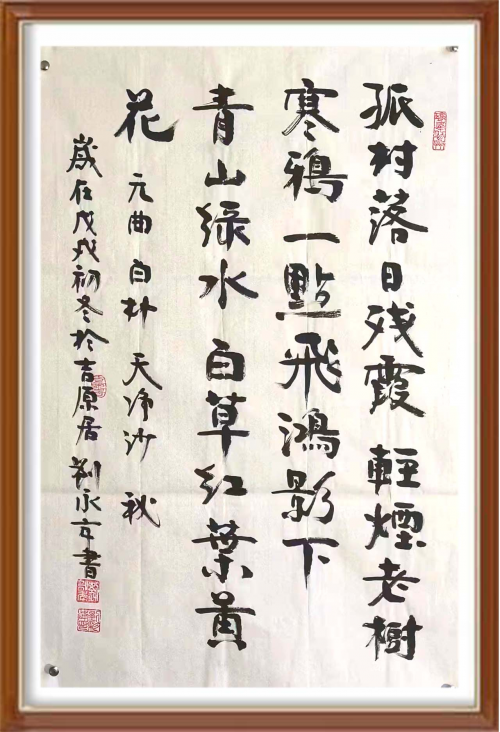 孤村落日残霞軽煙老樹
寒鴉一點飛鴻影下
青山綠水白草红葉黄
花
元曲白朴天净沙秋
歲在戊戌初冬於吉原居刘永京書